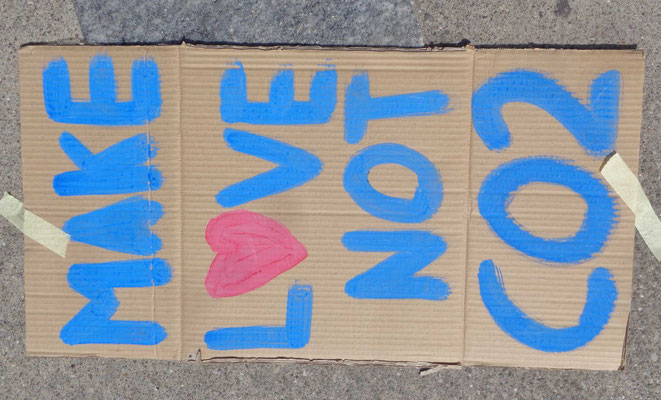 MAKE
L❤VE
NOT
CO2